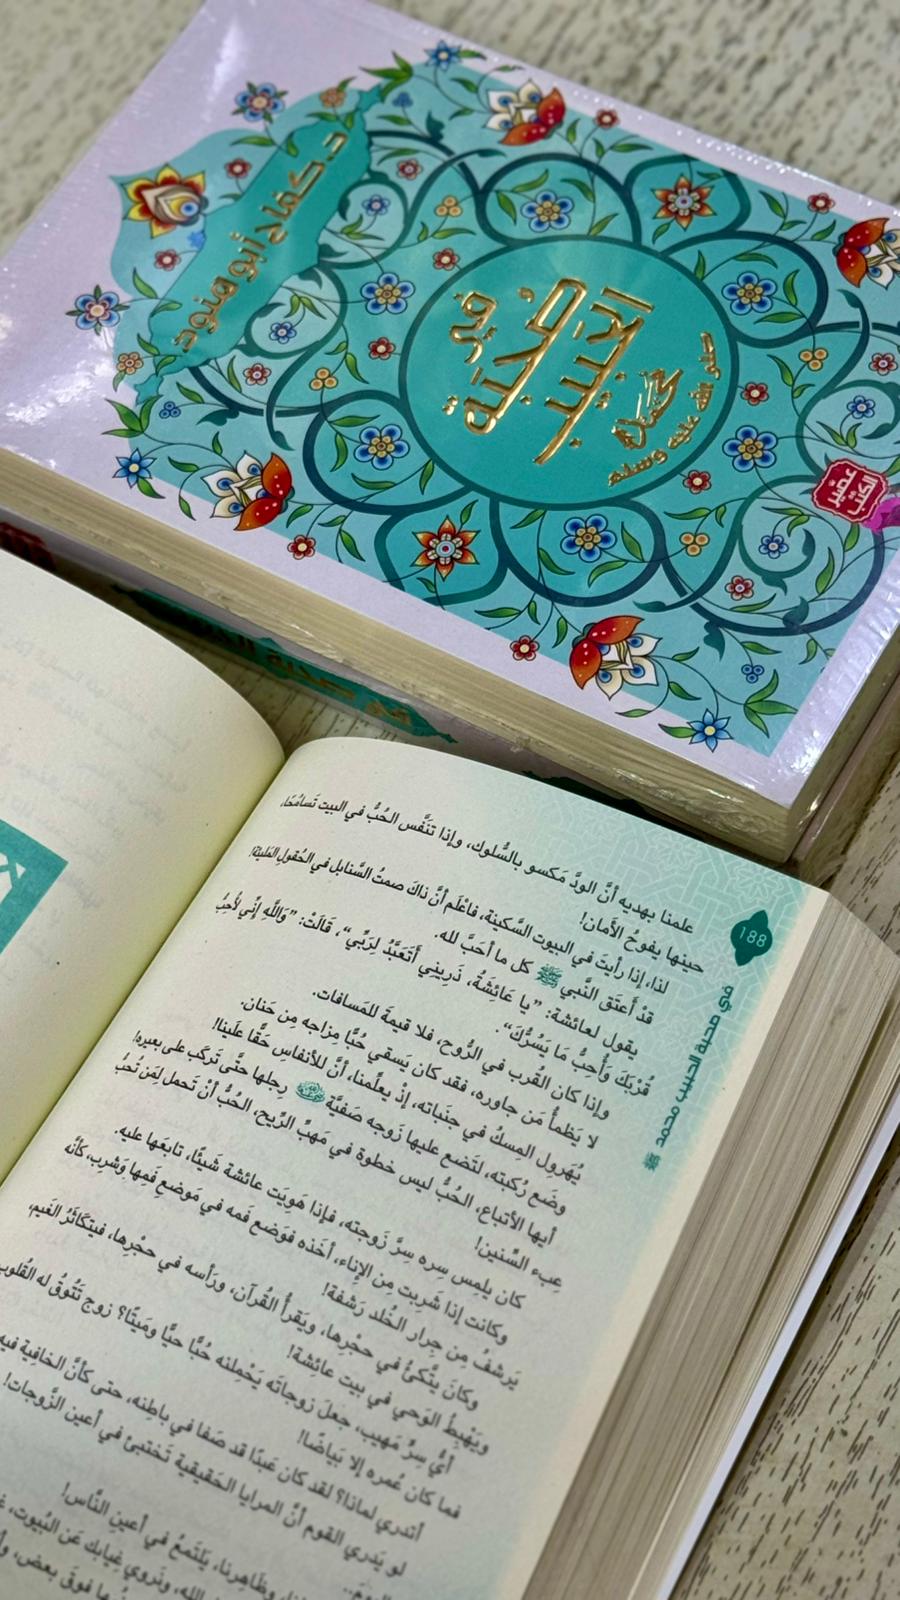 د. كفاح أبو هنود
في
صُحبَة
الحَبيب
محمد
صلى الله عليه وسلم
عصير
الكتب
188
في صحبة الحبيب محمد ﷺ
علمنا بهديه أنَّ الودَّ مَكسو بالسُّلوك، وإذا تنَفَّس الحُبُّ في البيت تَسامُحًا،
حينها يفوحُ الأمان!
لذا، إذا رأيتَ في البيوت السَّكينة، فاعْلَم أنَّ ذاكَ صمتُ السَّنابل في الحُقولِ المَليئة!
قدْ أَعتَق النَّبي ﷺ كل ما أحَبَّ لله.
يقول لعائشة: "يا عَائشَةُ، ذَرِيني أَتَعَبَّدُ لِرَبِّي"، قَالَتْ: "وَاللَّهِ إنِّي لأُحِبُّ
قُرْبَكَ وَأُحِبُّ مَا يَسُرُّكَ".
وإذا كان القُرب في الرُّوح، فلا قيمةَ للمَسافات.
لا يَظمأُ مَن جاوره، فقد كان يَسقي حُبًّا مِزاجه مِن حَنان.
يُهَرول المِسكُ في جنَباته، إذْ يعلِّمنا، أنَّ للأنفاسِ حَقًّا علَينا!
وضَع رُكبته، لتَضع عليها زَوجه صَفيَّة ﷺ رِجلها حتَّى تَركَب على بعيره!
أيها الأتباع، الحُبُّ ليس خطوة في مَهبِّ الرِّيح، الحُبُّ أنْ تَحمل لِمَن تُحبُّ
عِبء السِّنين!
كان يلمِس سِره سِرَّ زَوجته، فإذا هَوِيَت عائشة شَيئًا، تابَعَها عليه.
وكانت إذا شَرِبت مِن الإناء، أخَذه فوَضع فَمه في مَوضعِ فَمِها وَشرِب، كأنَّه
يَرشفُ مِن جِرار الخُلد رَشفة!
وكانَ يتَّكئُ في حجْرِها، ويَقرأُ القُرآن، ورَأسه في حجْرِها، فيتكَاثَرُ الغَيم،
ويَهْبِطُ الوَحي في بيت عائشة!
أيُّ سِرٍّ مَهيب، جعلَ زوجاته يَحْمِلنه حُبًّا حيًّا ومَيتًا؟ زوج تَتُوقُ له القُلوب
فما كان عُمره إلا بَياضًا!
أتدري لماذا؟ لقد كان عَبدًا قد صَفا في باطِنه، حتى كأنَّ الخافِية فيه
لو يَدري القوم أنَّ المرايا الحَقيقية تَختبئ في أعين الزَّوجات!
وظَاهِرنا، يَلتَمعُ في أعينِ النَّاس!
الله، ونَروي غيابك عَن البُيوت،
فوق بعض،